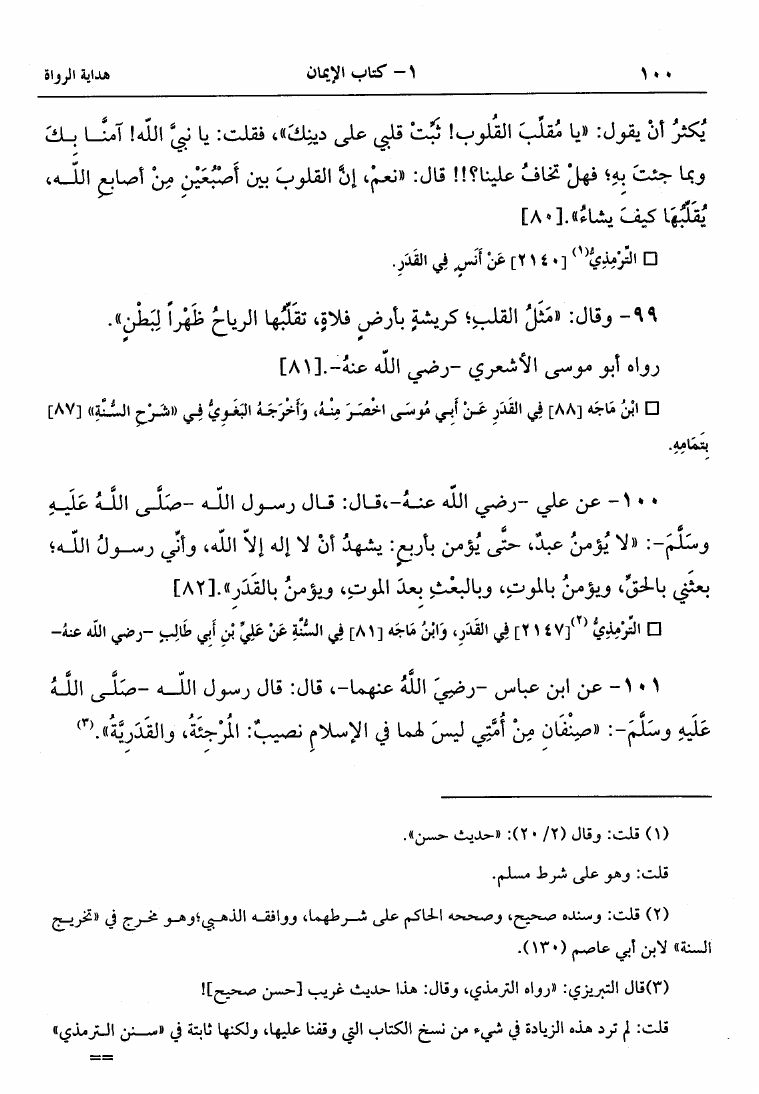 ١٠٠ ١- كتاب الإيمان هداية الرواة
يُكثرُ أنْ يقول: «يا مُقلِّبَ القُلوب! ثبِّتْ قلبي على دينِكَ»، فقلت: يا نبيَّ الله! آمنَّا بـكَ
وبما جئتَ بِهِ؛ فهلْ تخافُ علينا؟!! قال: «نعمْ، إنَّ القلوبَ بين أَصْبُعَيْنِ مِنْ أصابعِ اللـه،
يُقَلِّبُهَا كيفَ يشاءُ».[٨٠]
□ التِّرْمِذِيُّ(١) [٢١٤٠] عَنْ أَنَسٍ فِي القَدَرِ.
٩٩- وقال: «مَثَلُ القلبِ؛ كريشةٍ بأرضِ فلاةٍ، تقلِّبُها الرياحُ ظَهْراً لِبَطْنٍ».
رواه أبو موسى الأشعري -رضي الله عنهُ-.[٨١]
□ ابْنُ مَاجَه [٨٨] فِي القَدَرِ عَـنْ أَبِـي مُوسَـى اخْصَـرَ مِنْـهُ، وَأَخْرَجَـهُ البَغَـوِيُّ فِـي «شَرْحِ السُّنَّةِ» [٨٧]
بِتَمَامِهِ.
١٠٠- عن علي -رضي الله عنـهُ-،قـال: قـال رسـول اللـه -صَلَّـى اللَّـهُ عَلَيْـهِ
وسَلَّمَ-: «لا يُؤمنُ عبدٌ، حتَّى يُؤمن بأربعٍ: يشهدُ أنْ لا إله إلاّ الله، وأنّي رسـولُ اللـه؛
بعثَني بالحقِّ، ويؤمنُ بالموتِ، وبالبعْثِ بعدَ الموتِ، ويؤمنُ بالقَدَرِ».[٨٢]
□ التِّرْمِذِيُّ (٢)[٢١٤٧] فِي القَدَرِ، وَابْنُ مَاجَه [٨١] فِي السُّنَّةِ عَنْ عَلِيِّ بْنِ أَبِي طَالِبٍ -رضي الله عنهُ-
١٠١- عن ابن عباس -رضيَ اللَّهُ عنهما-، قال: قال رسول اللـه -صَلَّـى اللَّـهُ
عَلَيهِ وسَلَّمَ-: «صِنْفَانِ مِنْ أُمَّتِي ليسَ لهما في الإسلامِ نصيبٌ: المُرْجِئَةُ، والقَدَرِيَّةُ».(٣)
(١) قلت: وقال (٢/ ٢٠): «حديث حسن».
قلت: وهو على شرط مسلم.
(٢) قلت: وسنده صحيح، وصححه الحاكم على شـرطهما، ووافقـه الذهـبي؛وهـو مخـرج في «تخريـج
السنة» لابن أبي عاصم (١٣٠).
(٣)قال التبريزي: «رواه الترمذي، وقال: هذا حديث غريب [حسن صحيح]!
قلت: لم ترد هذه الزيادة في شيء من نسخ الكتاب التي وقفنا عليها، ولكنها ثابتة في «سـنن الـترمذي»
==